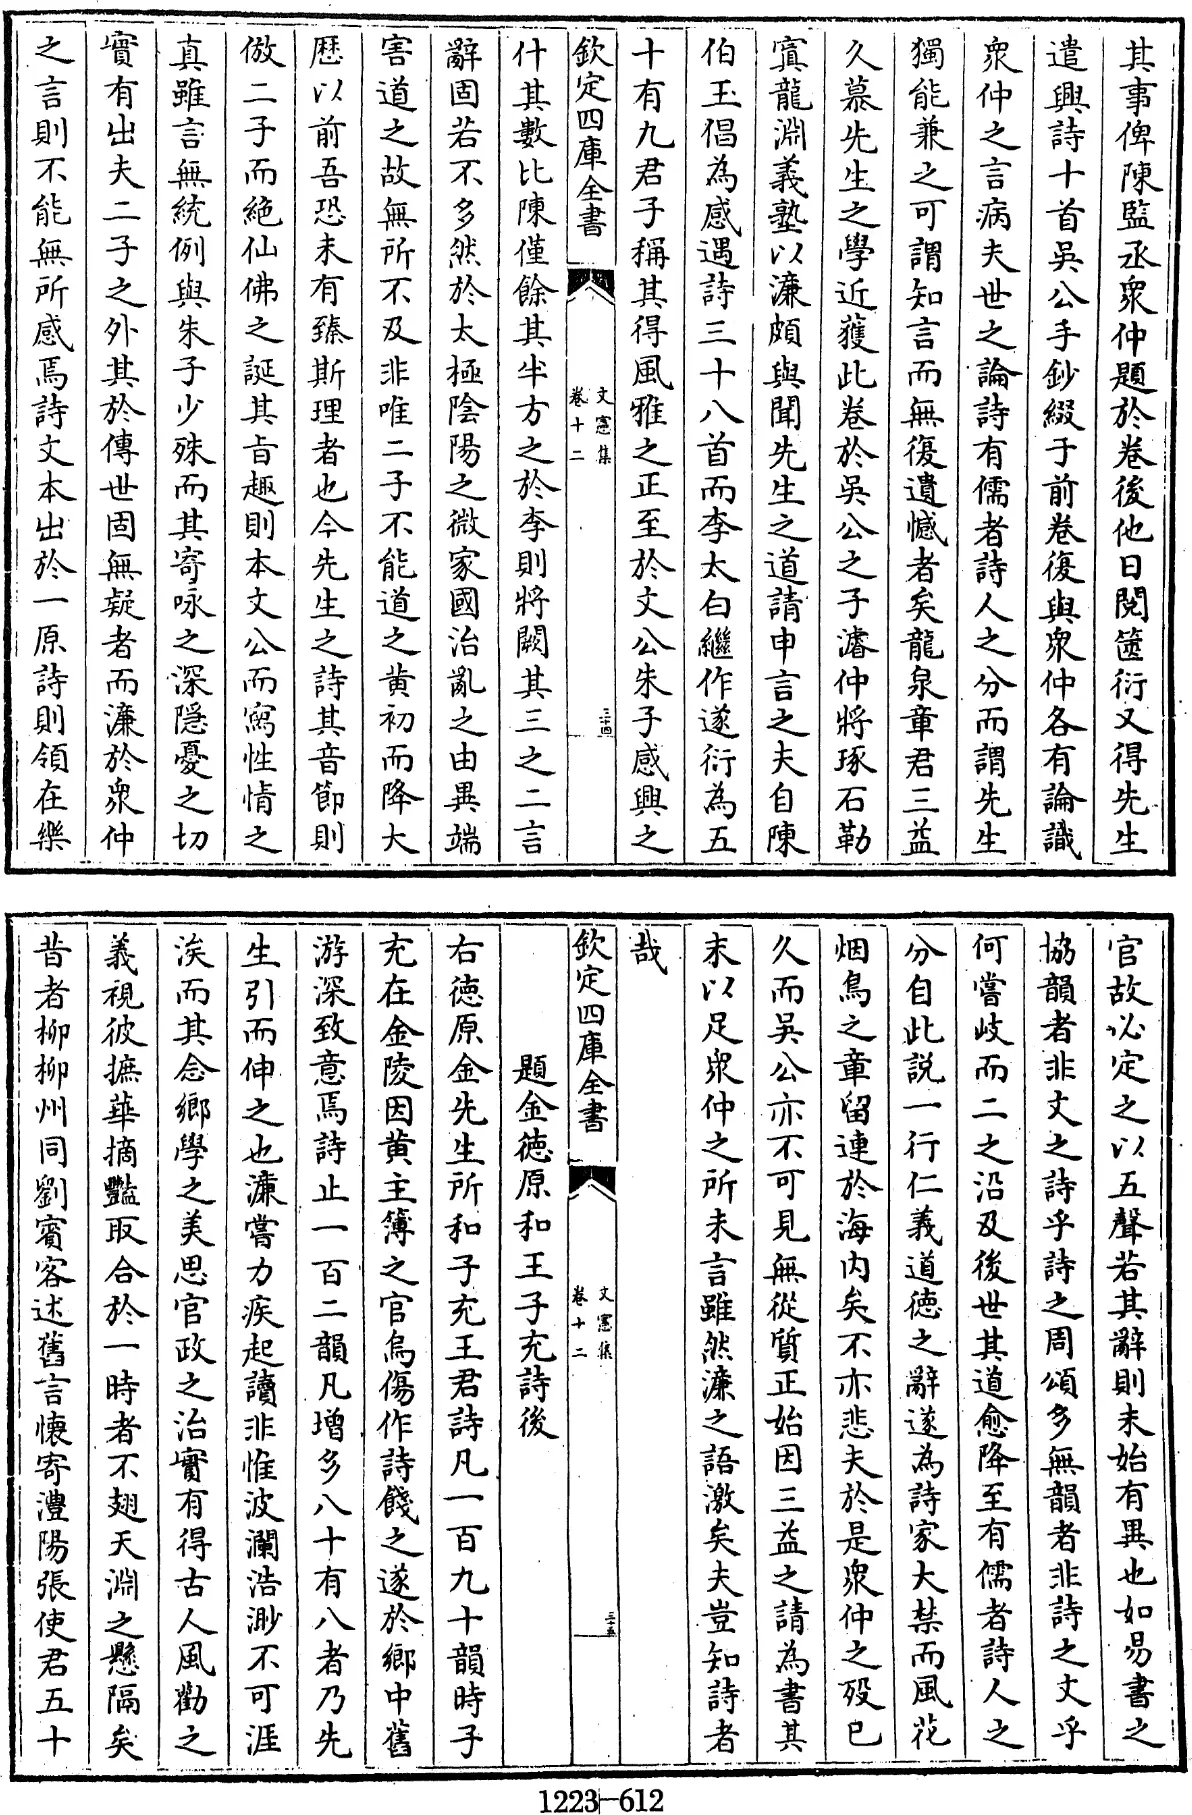 其事俾陳監丞衆仲題於卷後他日閱篋衍又得先生
遣興詩十首吳公手鈔綴于前卷復與衆仲各有論識
衆仲之言病夫世之論詩有儒者詩人之分而謂先生
獨能兼之可謂知言而無復遺憾者矣龍泉章君三益
久慕先生之學近獲此卷於吳公之子濬仲將琢石勒
寘龍淵義塾以濂頗與聞先生之道請申言之夫自陳
伯玉倡為感遇詩三十八首而李太白繼作遂衍為五
十有九君子稱其得風雅之正至於文公朱子感興之
欽定四庫全書
文憲集
卷十二
三十四
什其數比陳僅餘其半方之於李則將闕其三之二言
辭固若不多然於太極陰陽之微家國治亂之由異端
害道之故無所不及非唯二子不能道之黄初而降大
歴以前吾恐未有臻斯理者也今先生之詩其音節則
倣二子而絶仙佛之誕其旨趣則本文公而寫性情之
真雖言無統例與朱子少殊而其寄咏之深隱憂之切
實有出夫二子之外其於傳世固無疑者而濂於衆仲
之言則不能無所感焉詩文本出於一原詩則領在樂
官故必定之以五聲若其辭則未始有異也如易書之
協韻者非文之詩乎詩之周頌多無韻者非詩之文乎
何嘗岐而二之沿及後世其道愈降至有儒者詩人之
分自此說一行仁義道徳之辭遂為詩家大禁而風花
烟鳥之章留連於海内矣不亦悲夫於是衆仲之殁已
久而吳公亦不可見無從質正始因三益之請為書其
末以足衆仲之所未言雖然濂之語激矣夫豈知詩者
哉
欽定四庫全書
文憲集
卷十二
三十五
題金徳原和王子充詩後
右徳原金先生所和子充王君詩凡一百九十韻時子
充在金陵因黄主簿之官烏傷作詩餞之遂於鄉中舊
游深致意焉詩止一百二韻凡增多八十有八者乃先
生引而伸之也濂嘗力疾起讀非惟波瀾浩渺不可涯
涘而其念鄉學之美思官政之治實有得古人風勸之
義視彼摭華摘豔取合於一時者不翅天淵之懸隔矣
昔者柳柳州同劉賓客述舊言懐寄澧陽張使君五十
1223-612